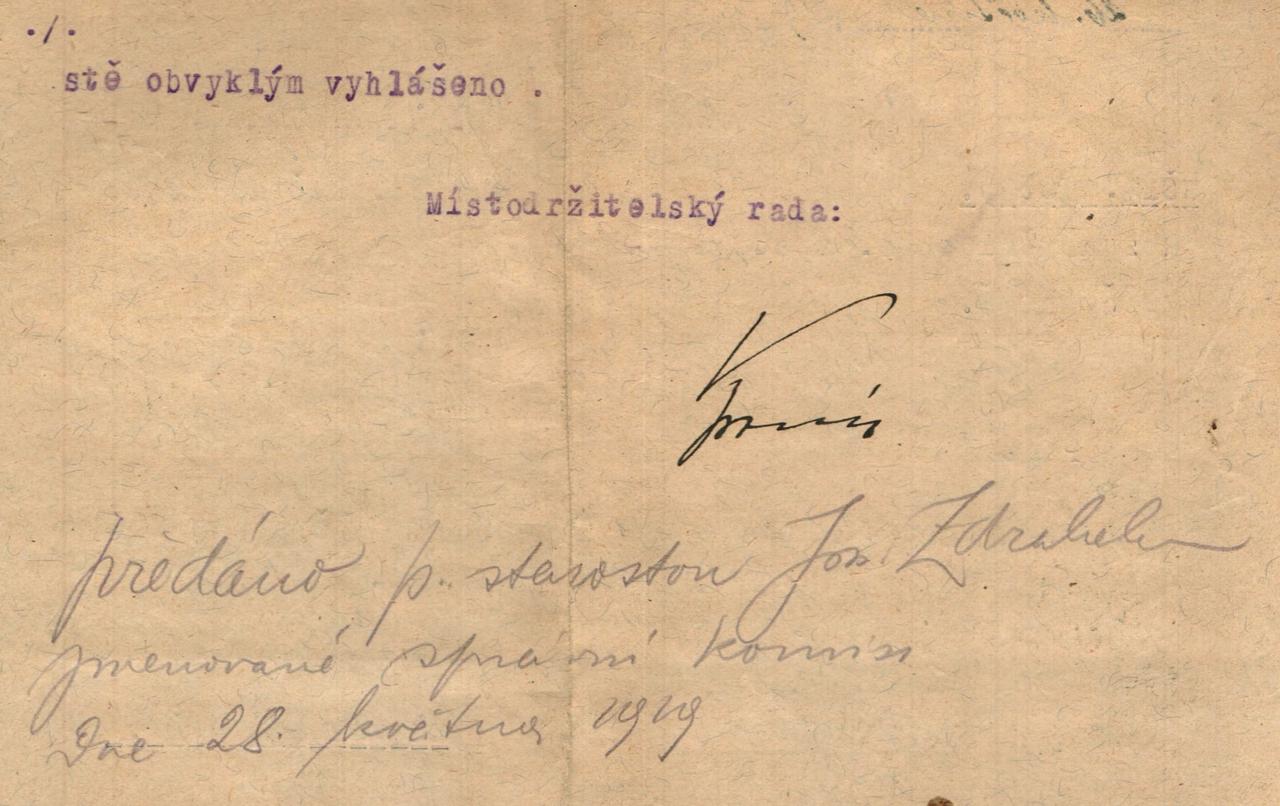 ./.
stě obvyklým vyhlášeno .
Místodržitelský rada:
předáno p. starostou Jos. Zdrahal
jmenované správní komisi
Dne 28. května 1919